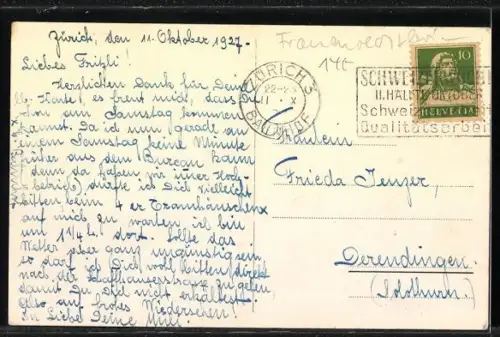 Zürich, den 11. Oktober 1927.
Liebes Fritzli!
Herzlichen Dank für Deine
lb. Karte, es freut mich, dass
Du am Samstag kommen
kannst. Da ich nun gerade an
einem Samstag keine Minute
früher aus dem Bureau kann
denn da haben wir immer Hoch-
betrieb, dürfte ich Dich vielleicht
bitten beim 4er Tramhäuschen
auf mich zu warten, ich bin
um 1¼ h. dort. Sollte das
Wetter aber ganz ungünstig sein,
so darf ich Dich wohl bitten, direkt
nach der Schaffhauserstrasse zu gehen,
damit Du Dich nicht erkältest.
Also auf frohes Wiedersehen!
In Liebe Deine
ZÜRICH 3
22
11 X
14c
10
HELVETIA
SCHWEIZER
II. HÄLFTE OKTOBER
Schweizer
Qualitätsarbeit
Fräulein
Frieda Jenzer,
Derendingen
(Solothurn).